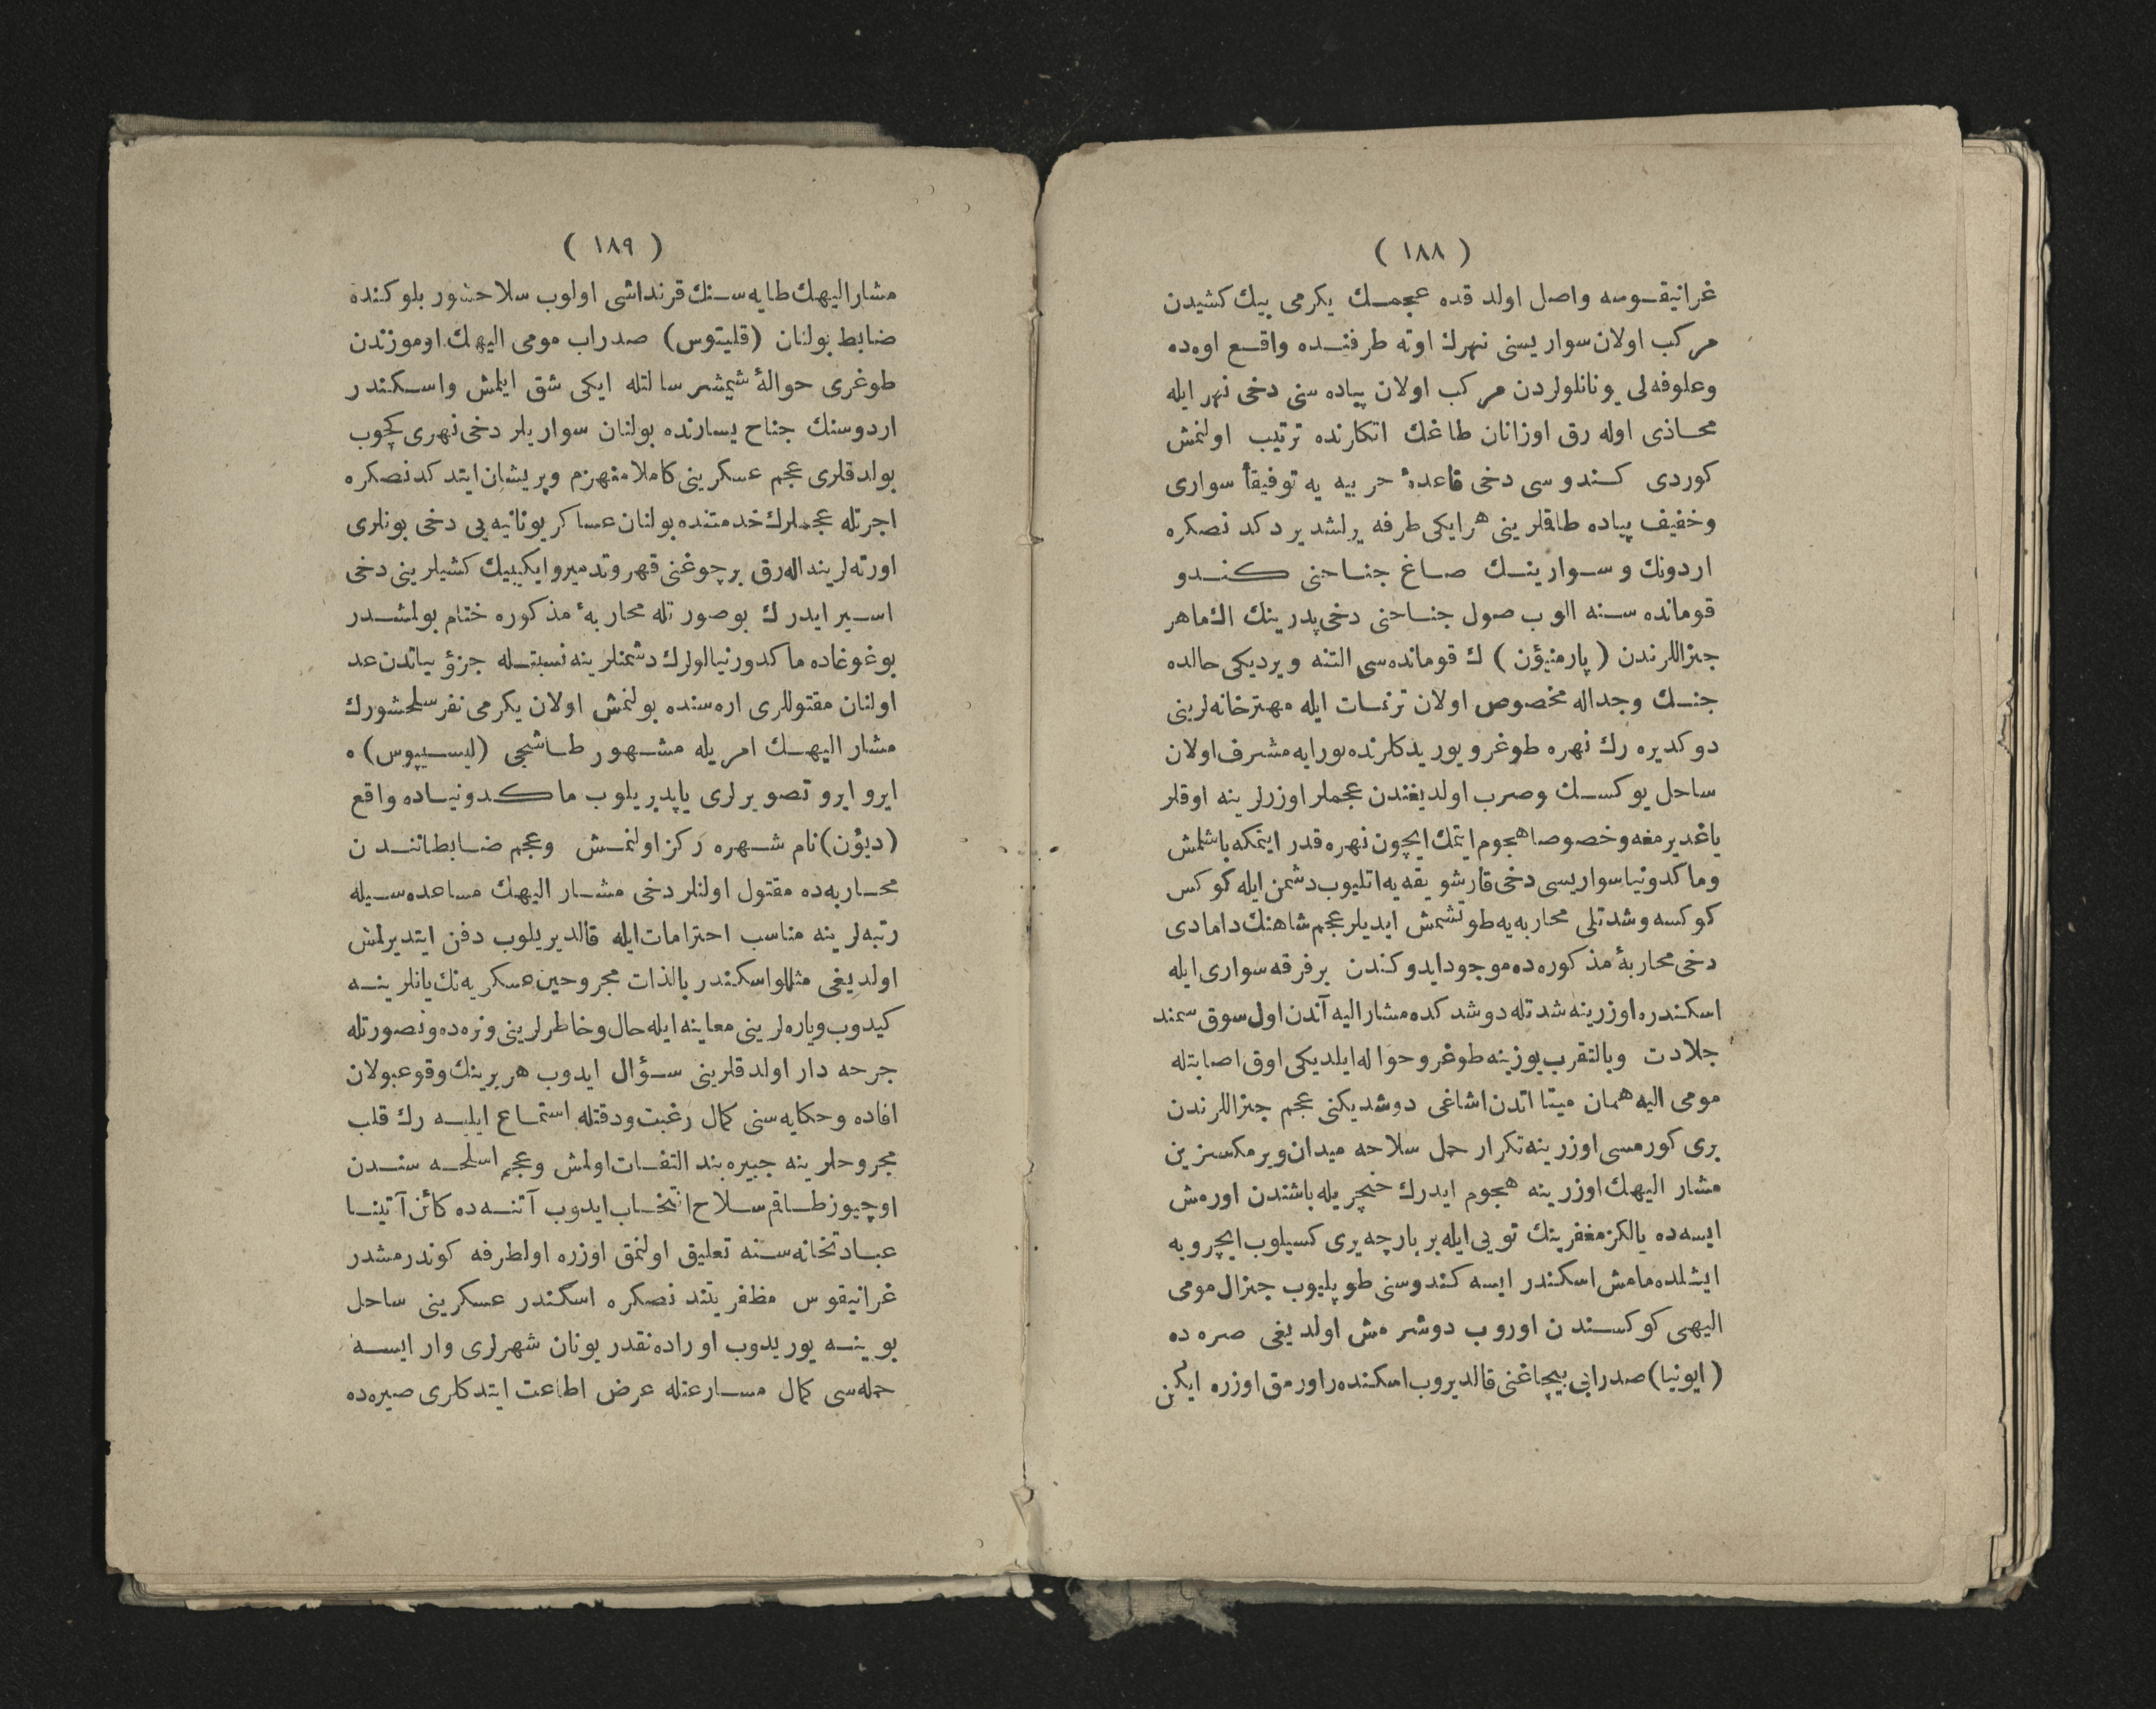 ( ١٨٨ )
غرانیقوسه واصل اولدقده عجمك یكرمی بیك كشیدن
مركب اولان سواریسنی نهرك اوته طرفنده واقع اوه ده
وعلوفه لی یونانلولردن مركب اولان پیاده سنی دخی نهر ایله
محاذی اوله رق اوزانان طاغك اتكارنده ترتیب اولنمش
كوردی كندوسی دخی قاعدهٔ حربیه یه توفیقاً سواری
وخفیف پیاده طاقلرینی هر ایكی طرفه یرلشدیردكدنصكره
اردونك وسوارینك صاغ جناحنی كندو
قومانده سنه الوب صول جناحنی دخی پدرینك اك ماهر
جنراللرندن (پارمنیؤن) ك قومانده سی التنه ویردیكی حالده
جنك وجداله مخصوص اولان ترنمات ایله مهترخانه لرینی
دوكدیره رك نهره طوغرو یوریدكلرنده بورایه مشرف اولان
ساحل یوكسك وصرب اولدیغندن عجملر اوزرلرینه اوقلر
یاغدیرمغه وخصوصا هجوم ایتمك ایچون نهره قدر اینمكه باشلمش
وماكدونیا سواریسی دخی قارشو یقه یه اتلیوب دشمن ایله كوكس
كوكسه وشدتلی محاربه یه طوتشمش ایدیلر عجم شاهنك دامادی
دخی محاربهٔ مذكوره ده موجود ایدوكندن بر فرقه سواری ایله
اسكندره اوزرینه شدتله دوشدكده مشار الیه آندن اول سوق سمند
جلادت وبالتقرب یوزینه طوغرو حواله ایلدیكی اوق اصابتله
مومی الیه همان میتا اتدن اشاغی دوشدیكنی عجم جنراللرندن
بری كورمسی اوزرینه تكرار حمل سلاحه میدان ویرمكسزین
مشار الیهك اوزرینه هجوم ایدرك خنجریله باشندن اورمش
ایسه ده یالكز مغفرینك تویی ایله بر پارچه یری كسیلوب ایچرویه
ایشلده مامش اسكندر ایسه كندوسنی طوپلیوب جنرال مومی
الیهی كوكسندن اوروب دوشرمش اولدیغی صره ده
(ایونیا) صدرابی بیچاغنی قالدیروب اسكندره اورمق اوزره ایكن
( ١٨٩ )
مشار الیهك طایه سنك قرنداشی اولوب سلاحشور بلوكنده
ضابط بولنان (قلیتوس) صدراب مومی الیهك اوموزندن
طوغری حوالهٔ شیمشر سالتله ایكی شق ایلمش واسكندر
اردوسنك جناح یسارنده بولنان سواریلر دخی نهری كچوب
بولدقلری عجم عسكرینی كاملا منهزم وپریشان ایتدكدنصكره
اجرتله عجملرك خدمتنده بولنان عساكر یونانیه یی دخی بونلری
اورته لرینه اله رق برچوغنی قهر وتدمیر وایكیبیك كشیلرینی دخی
اسیر ایدرك بو صورتله محاربهٔ مذكوره ختام بولمشدر
بو غوغاده ماكدورنیالولرك دشمنلرینه نسبتله جزؤیباتدن عد
اولنان مقتوللری اره سنده بولنمش اولان یكرمی نفر سلحشورك
مشار الیهك امریله مشهور طاشجی (لیسیپوس) ه
ایرو ایرو تصویرلری یاپدیریلوب ماكدونیاده واقع
(دیؤن) نام شهره ركز اولنمش وعجم ضابطانندن
محاربه ده مقتول اولنلر دخی مشار الیهك مساعده سیله
رتبه لرینه مناسب احترامات ایله قالدیریلوب دفن ایتدیرلمش
اولدیغی مثللو اسكندر بالذات مجروحین عسكریه نك یانلرینه
كیدوب ویاره لرینی معاینه ایله حال وخاطرلرینی ونره ده ونصورتله
جرحه دار اولدقلرینی سؤال ایدوب هر برینك وقوعبولان
افاده وحكایه سنی كمال رغبت ودقتله استماع ایلیه رك قلب
مجروحلرینه جبیره بند التفات اولمش وعجم اسلحه سندن
اوچیوز طاقم سلاح انتخاب ایدوب آتنه ده كائن آتینا
عبادتخانه سنه تعلیق اولنمق اوزره اولطرفه كوندرمشدر
غرانیقوس مظفریتندنصكره اسكندر عسكرینی ساحل
بوینه یوریدوب اوراده نقدر یونان شهرلری وار ایسه
جمله سی كمال مسارعتله عرض اطاعت ایتدكلری صیره ده